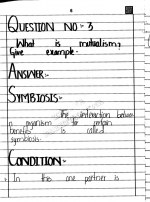 QUESTION NO:- 3
What is mutualism?
Give example.
ANSWER:-
SYMBIOSIS:-
The interaction between
organism for certain
benefits is called
symbiosis.
CONDITION:-
In this one partner is